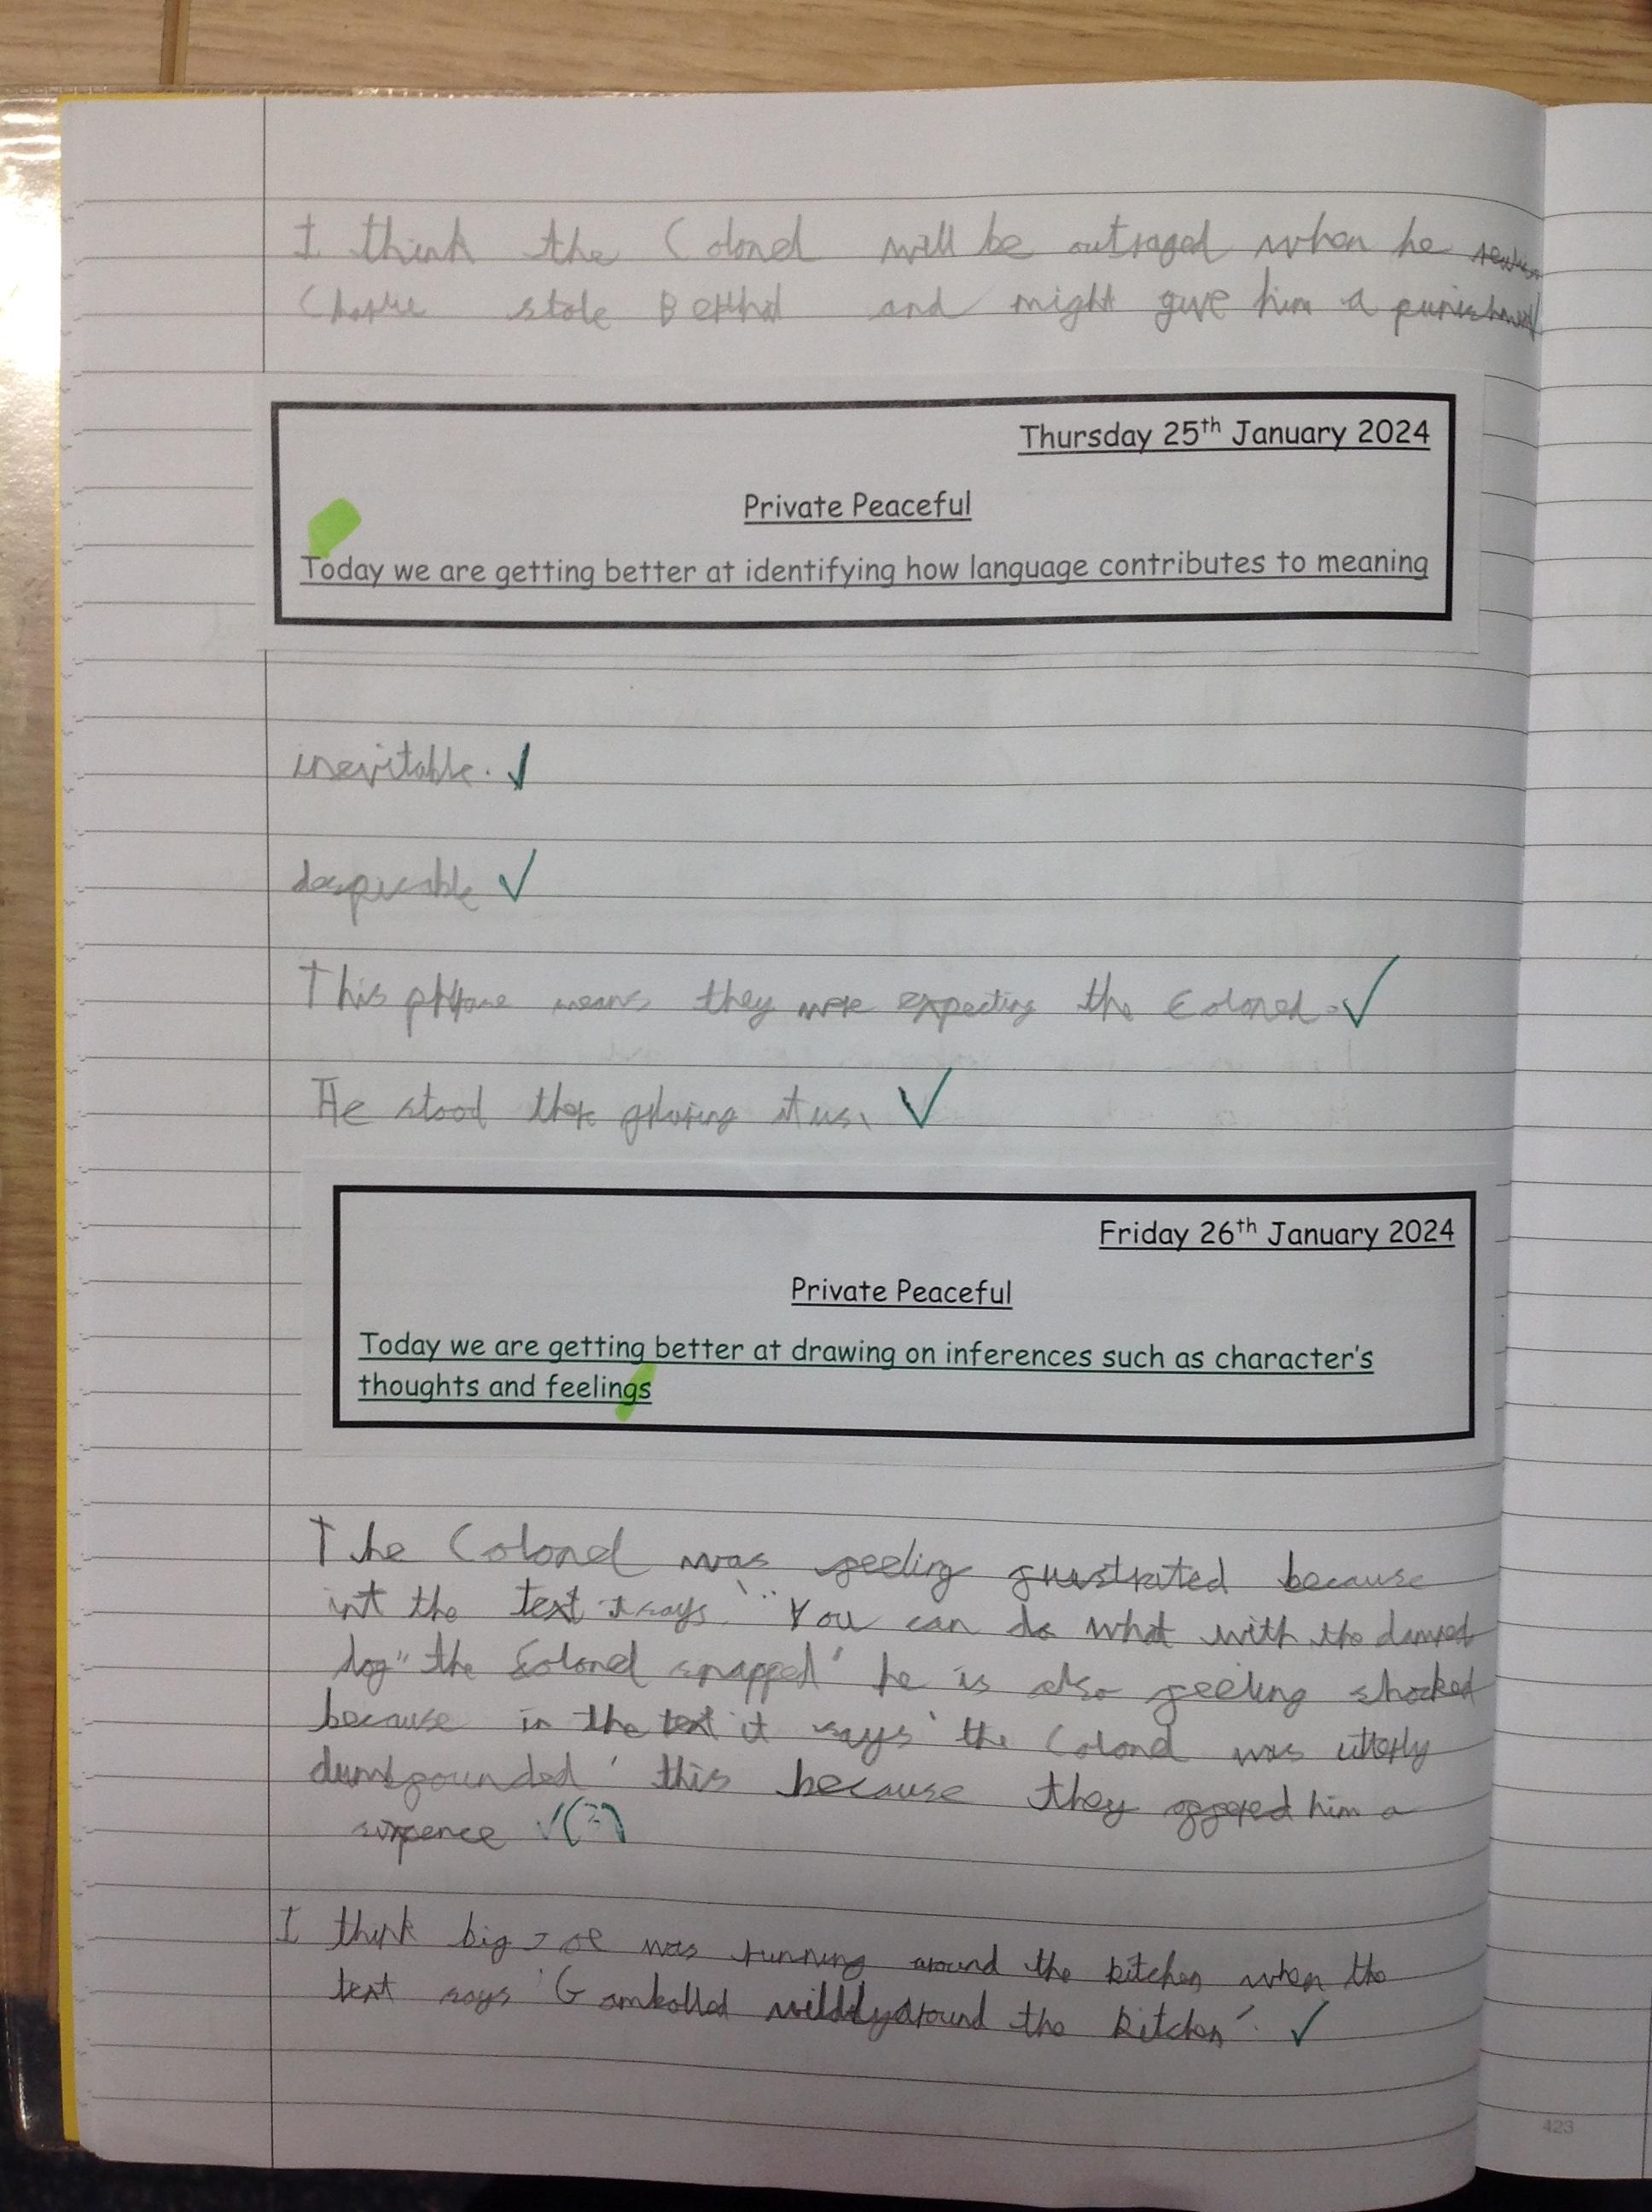 I think the Colonel will be outraged when he
Charlie stole Bertha and might give him a punishment
Thursday 25th January 2024
Private Peaceful
Today we are getting better at identifying how language contributes to meaning
inevitable.
despicable
This phrase means they were expecting the Colonel.
He stood there glaring at us.
Friday 26th January 2024
Private Peaceful
Today we are getting better at drawing on inferences such as character's
thoughts and feelings
The Colonel was feeling frustrated because
int the text it says '"You can do what with the damned
dog" the Colonel snapped' he is also feeling shocked
because in the text it says 'the Colonel was utterly
dumbfounded' this because they offered him a
sixpence
I think big Joe was running around the kitchen when the
text says 'Gambolled wildly around the kitchen'.
423